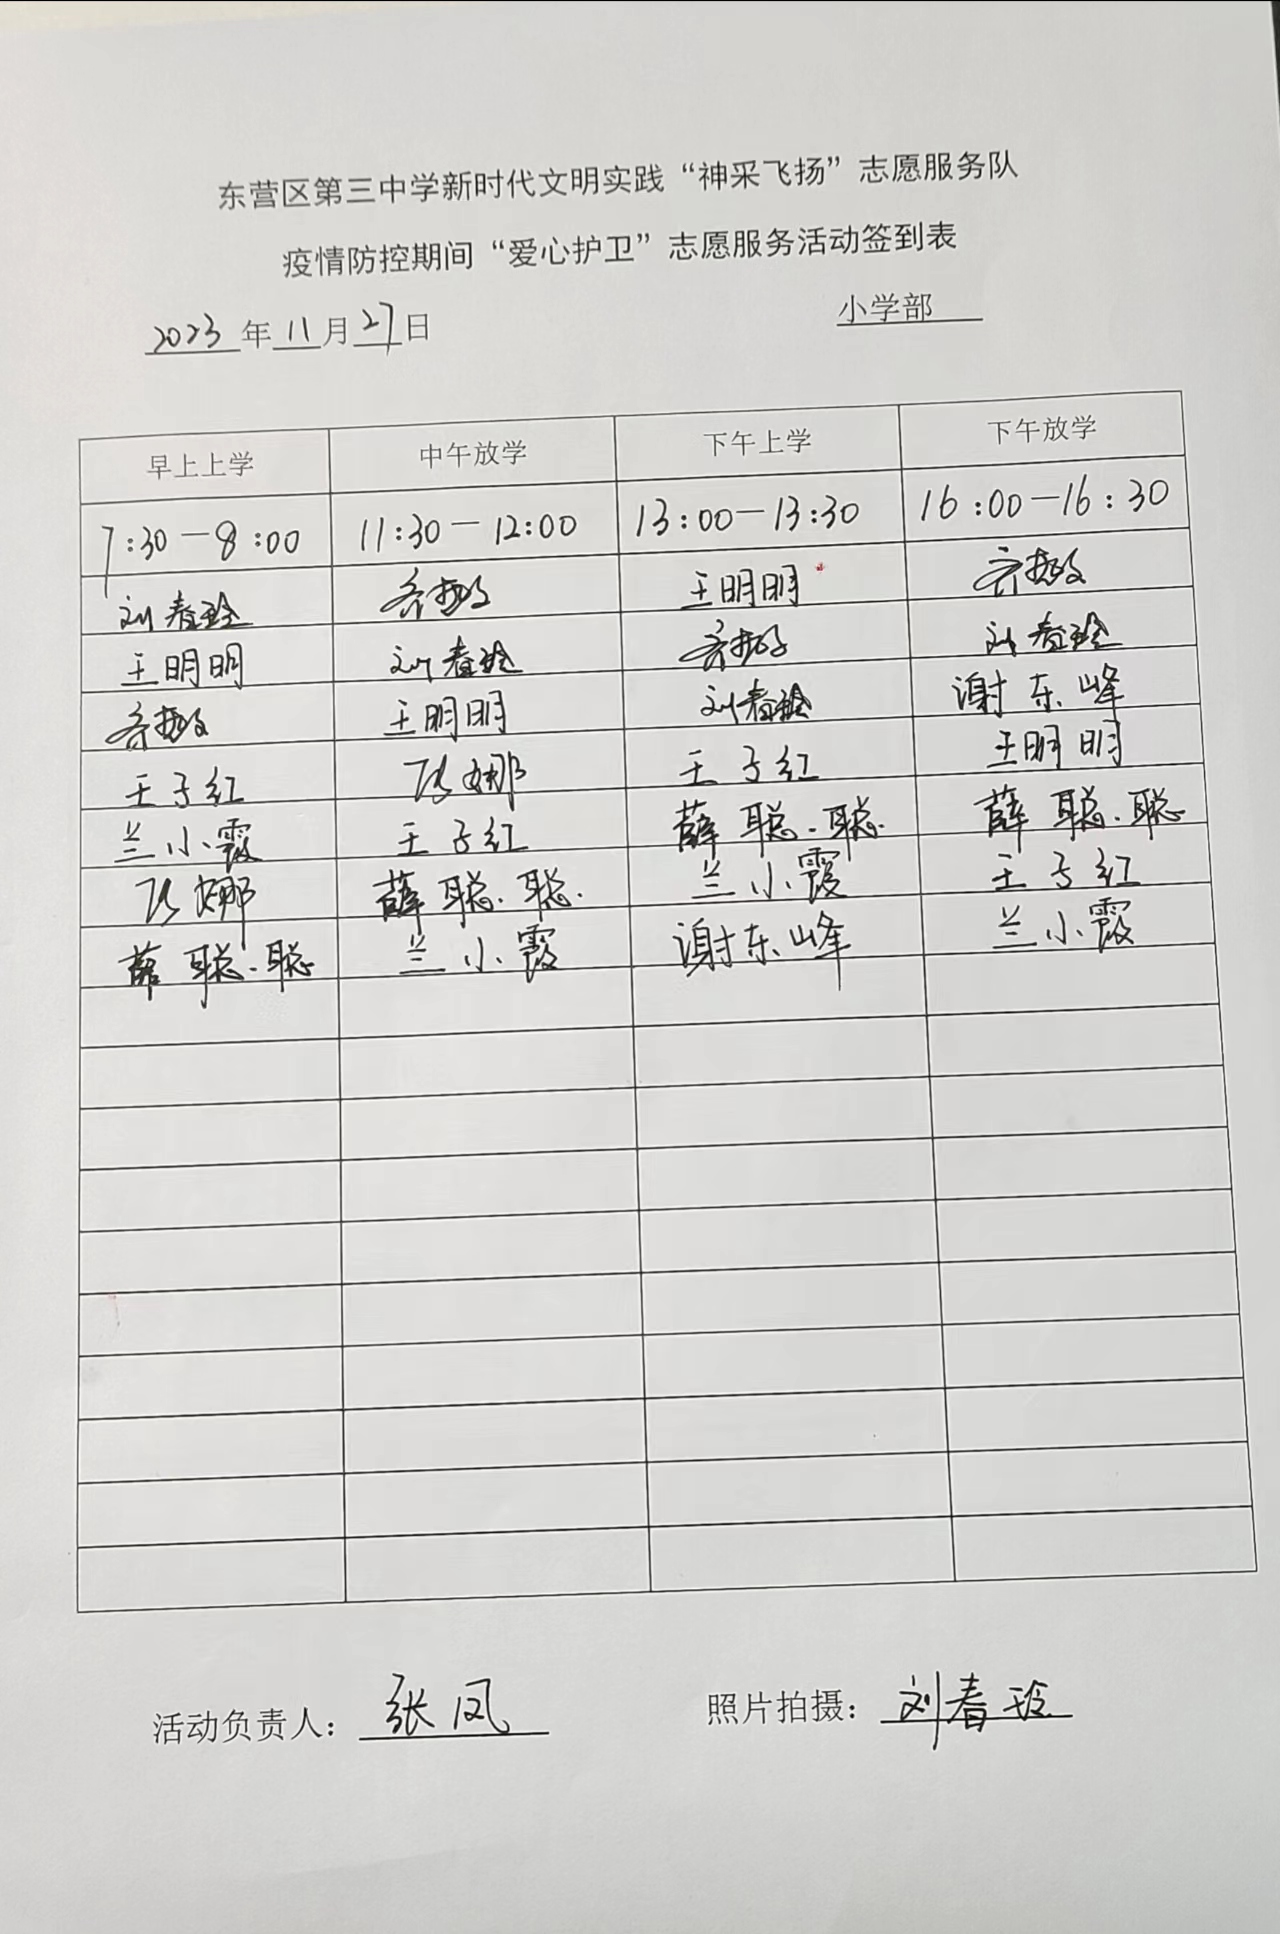 东营区第三中学新时代文明实践“神采飞扬”志愿服务队
疫情防控期间“爱心护卫”志愿服务活动签到表
2023年11月27日 小学部
早上上学 中午放学 下午上学 下午放学
7:30-8:00 11:30-12:00 13:00-13:30 16:00-16:30
刘春玲 王明明
王明明 刘春玲 刘春玲
王明明 刘春玲 谢东峰
王子红 张娜 王子红 王明明
兰小霞 王子红 薛聪聪 薛聪聪
张娜 薛聪聪 兰小霞 王子红
薛聪聪 兰小霞 谢东峰 兰小霞
活动负责人：张凤 照片拍摄：刘春玲